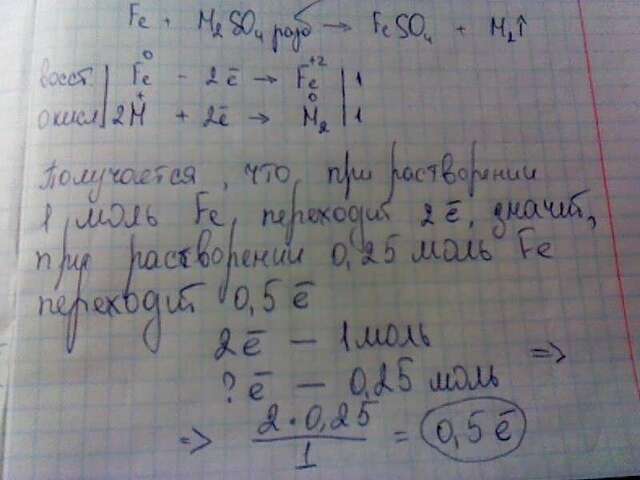 Fe + H₂SO₄ разб → FeSO₄ + H₂↑
восст | Fe⁰ - 2ē → Fe⁺² | 1
окисл | 2H⁺ + 2ē → H₂⁰ | 1
Получается, что при растворении
1 моль Fe, переходит 2ē, значит,
при растворении 0,25 моль Fe
переходит 0,5 ē
2ē — 1 моль
=>
? ē — 0,25 моль
=> 2 · 0,25 / 1 = 0,5 ē